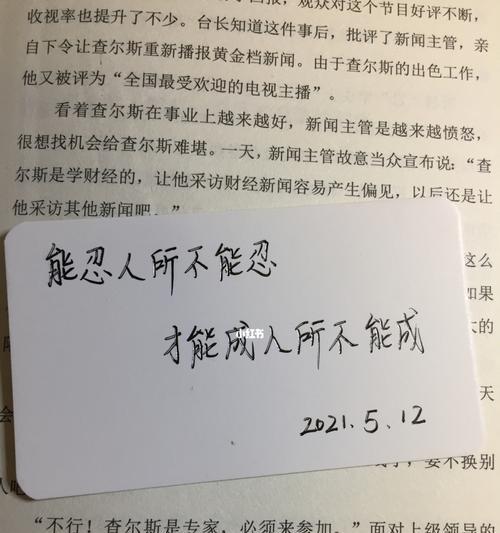 观众对这个节目好评不断,
收视率也提升了不少。台长知道这件事后,批评了新闻主管,亲
自下令让查尔斯重新播报黄金档新闻。由于查尔斯的出色工作,
他又被评为“全国最受欢迎的电视主播”。
看着查尔斯在事业上越来越好,新闻主管是越来越愤怒,
很想找机会给查尔斯难堪。一天,新闻主管故意当众宣布说:“查
尔斯是学财经的,让他采访财经新闻容易产生偏见,以后还是让
他采访其他新闻吧。”
这么
如果
大的
能忍人所不能忍
才能成人所不能成
小红书
2021.5.12
天
会
要不换别
人吧
“不行!查尔斯是专家,必须来参加。”面对上级领导的